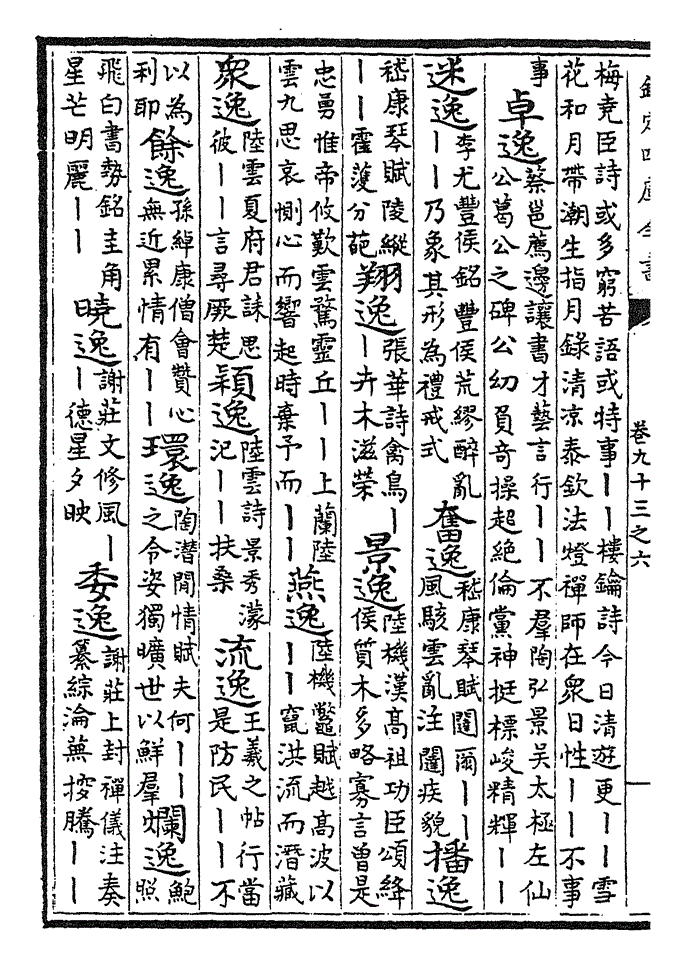 欽定四庫全書
卷九十三之六
一
梅堯臣詩或多窮苦語或特事一一樓鑰詩今日清遊更一一雪
花和月帶潮生指月錄清凉泰欽法燈禪師在衆日性一一不事
事
卓逸
蔡邕薦邊讓書才藝言行一一不羣陶弘景吳太極左仙
公葛公之碑公幼負奇操超絶倫黨神挺標峻精輝一一
迷逸
李尤豐侯銘豐侯荒繆醉亂
一一乃象其形為禮戒式
奮逸
嵇康琴賦闥爾一一
風駭雲亂注闥疾貌
播逸
嵇康琴賦陵縱
一一霍濩分葩
翔逸
張華詩禽鳥一
一卉木滋榮
景逸
陸機漢高祖功臣頌絳
侯質木多略寡言曾是
忠勇惟帝攸歎雲騖靈丘一一上蘭陸
雲九思哀惻心而響起時棄予而一一
燕逸
陸機鼈賦越高波以
一一竄洪流而潛藏
衆逸
陸雲夏府君誄思
彼一一言尋厥楚
穎逸
陸雲詩景秀濛
汜一一扶桑
流逸
王羲之帖行當
是防民一一不
以為
利耶
餘逸
孫綽康僧會贊心
無近累情有一一
環逸
陶潛閒情賦夫何一一
之令姿獨曠世以鮮羣
爛逸
鮑
照
飛白書勢銘圭角
星芒明麗一一
曉逸
謝莊文修風一
一德星夕映
委逸
謝莊上封禪儀注奏
纂綜淪蕪搜騰一一